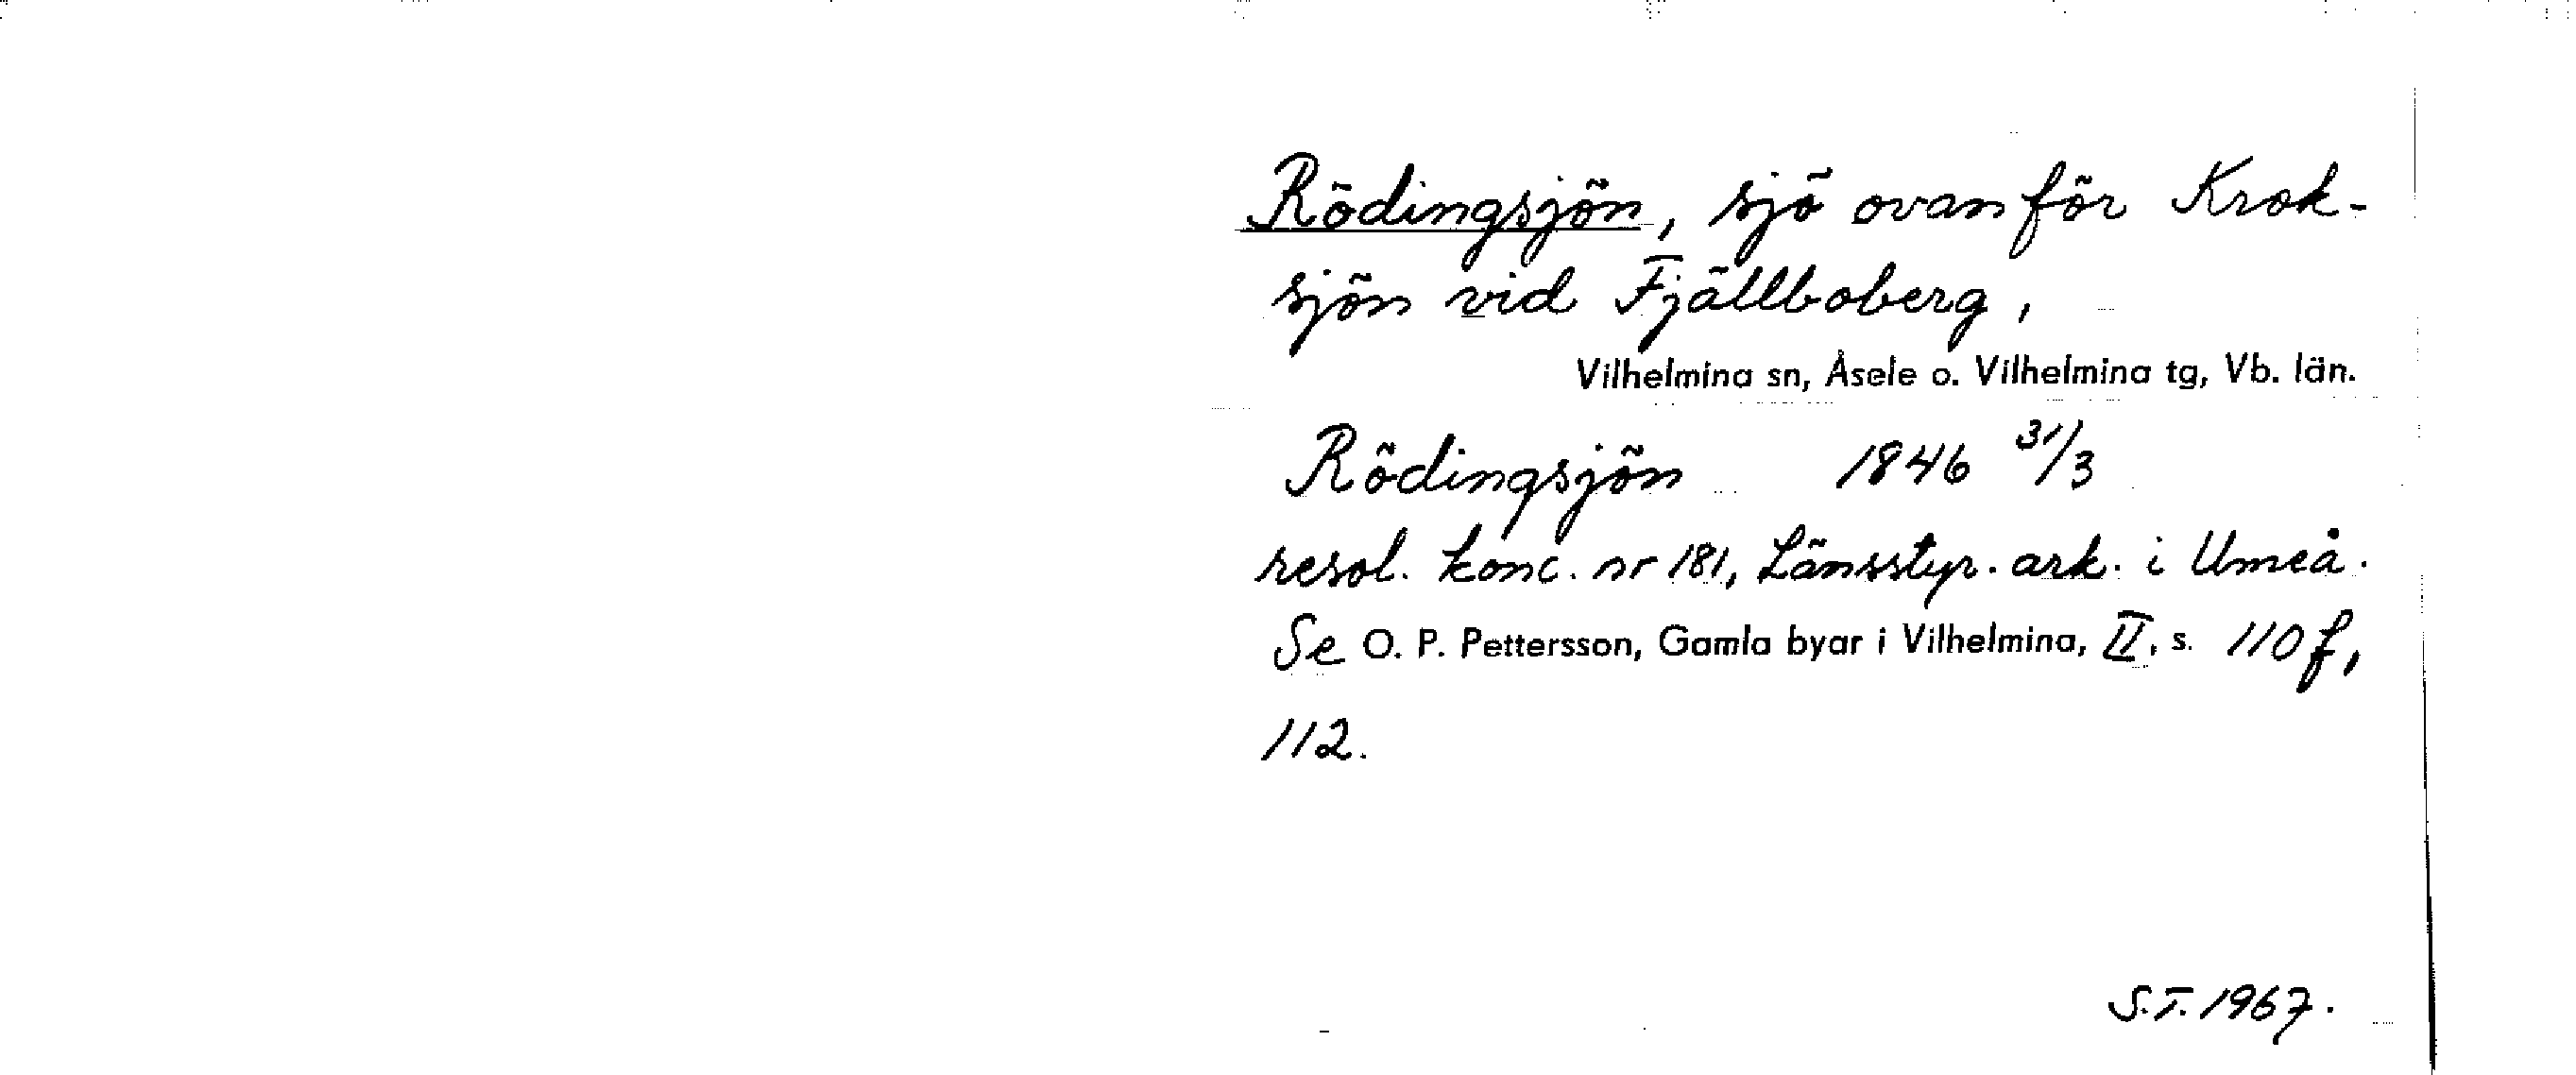 Rödingsjön, sjö ovanför Krok-
sjön vid Fjällboberg,
Vilhelmina sn, Åsele o. Vilhelmina tg, Vb. län.
Rödingsjön 1846 31/3
resol. konc. nr 181, Länsstyr. ark. i Umeå.
Se O. P. Pettersson, Gamla byar i Vilhelmina, II, s. 110 f,
112.
S.T. 1967.